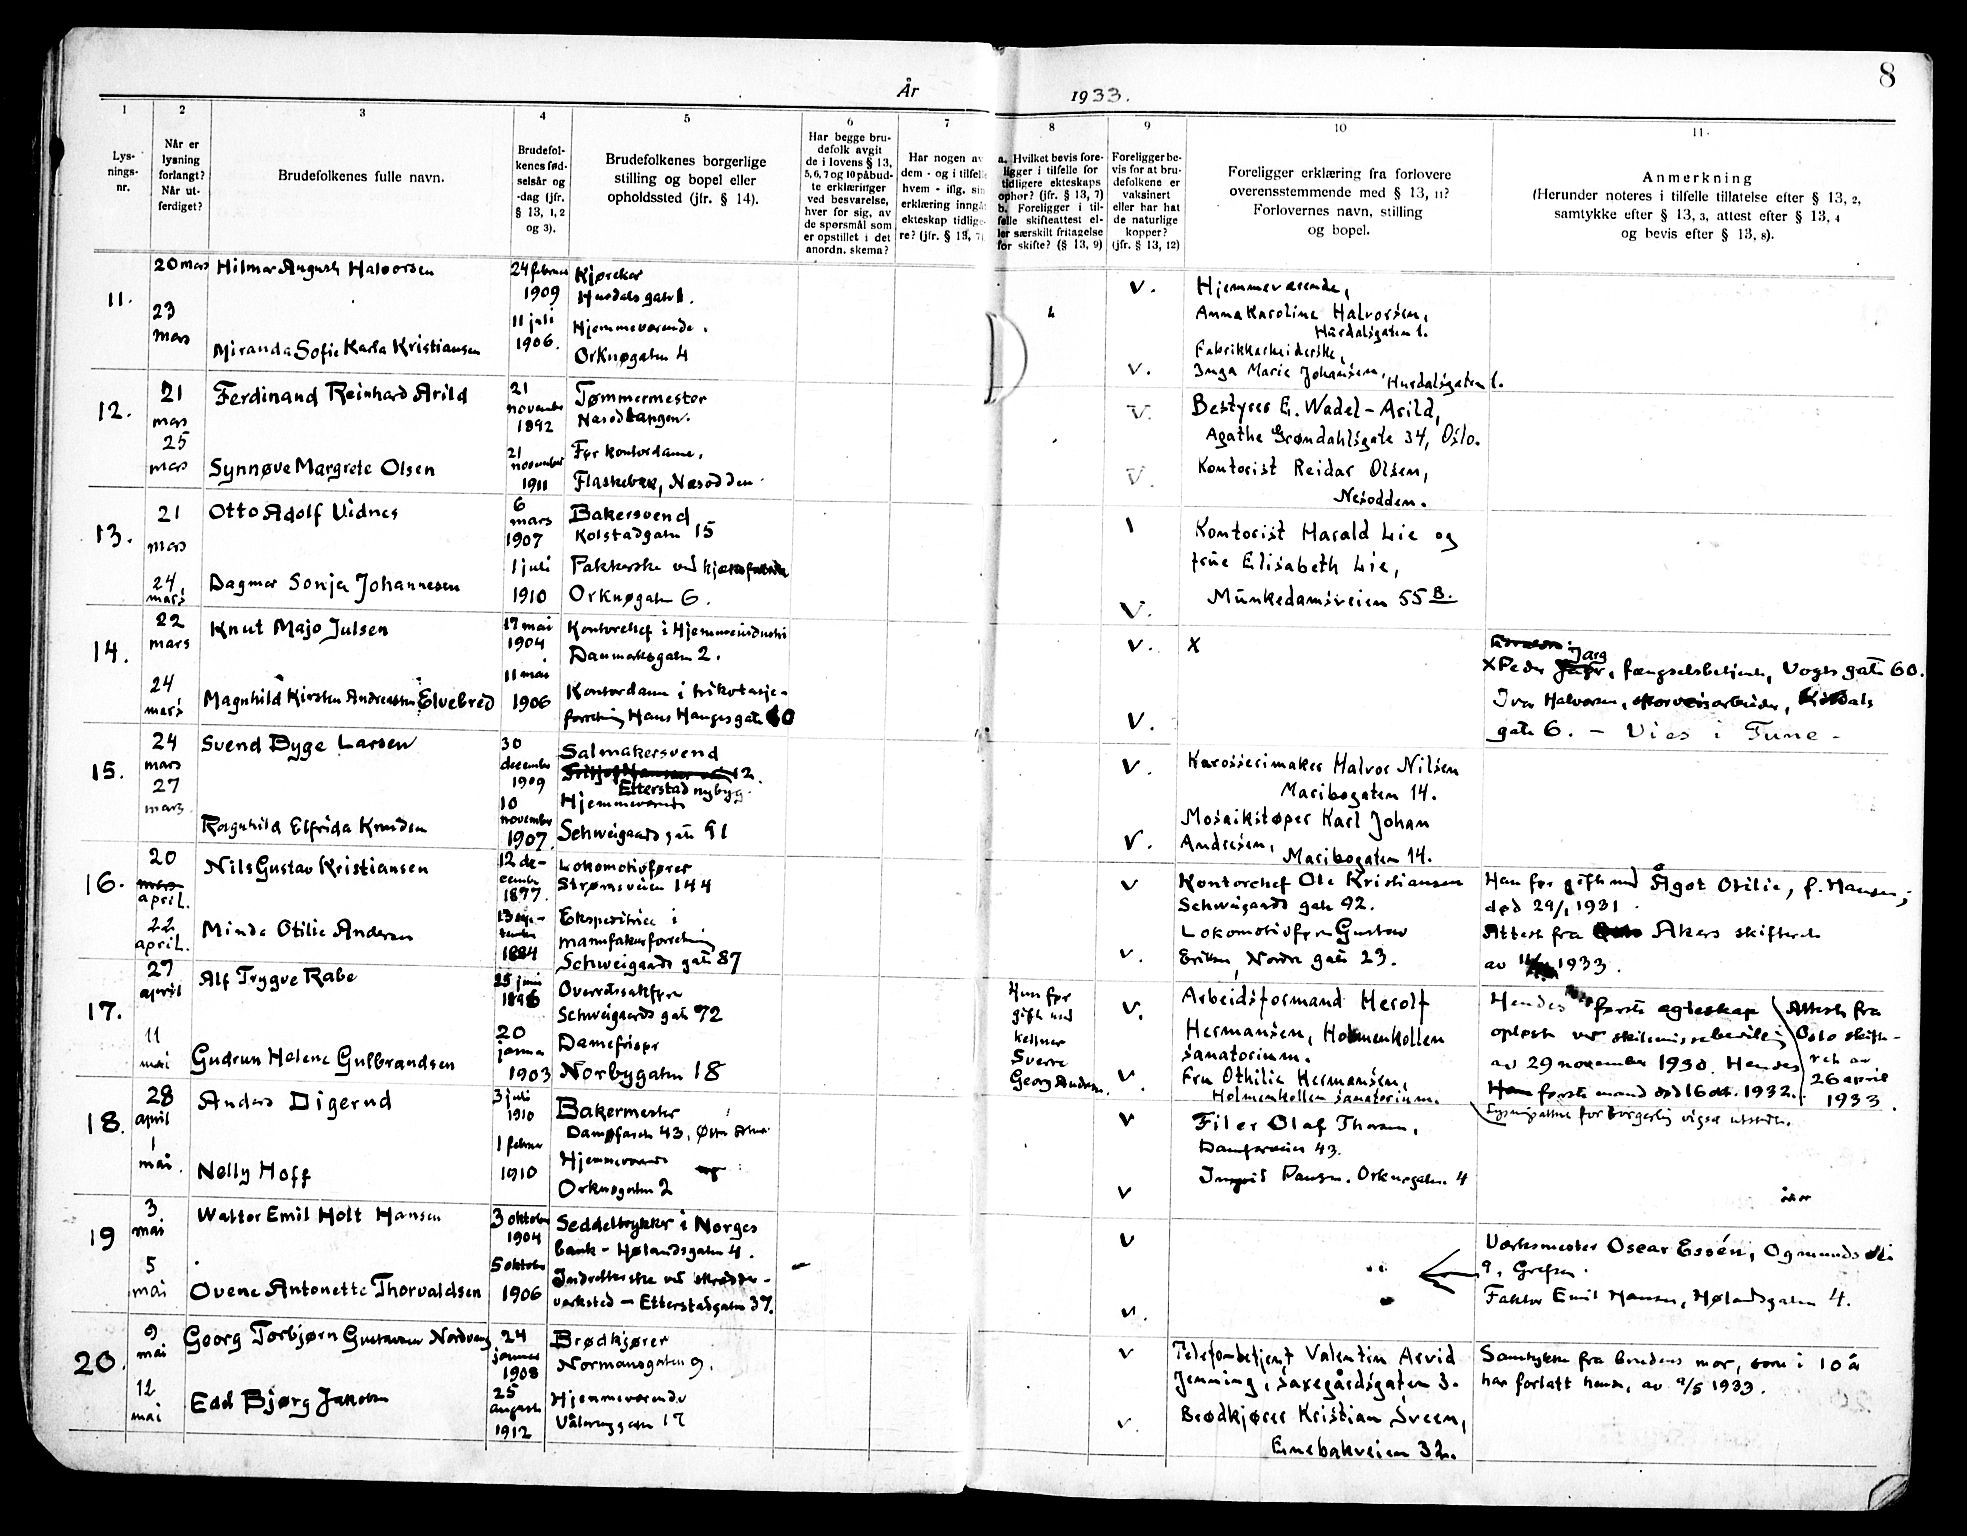 År 1933.
8
1
2
3
4
5
6
7
8
9
10
11.
Lys-
nings-
nr.
Når er
lysning
forlangt?
Når ut-
ferdiget?
Brudefolkenes fulle navn.
Brudefol-
kenes fød-
selsår og
-dag (jfr.
§ 13, 1, 2
og 3).
Brudefolkenes borgerlige
stilling og bopel eller
opholdssted (jfr. § 14).
Har begge bru-
defolk avgit
de i lovens § 13,
5, 6, 7 og 10 påbud-
te erklæringer
ved besvarelse,
hver for sig, av
de spørsmål som
er opstillet i det
anordn. skema?
Har nogen av
dem - og i tilfelle
hvem - iflg. sin
erklæring inngåt
ekteskap tidlige-
re? (jfr. § 13, 7)
a. Hvilket bevis fore-
ligger i tilfelle for
tidligere ekteskaps
ophør? (jfr. § 13, 7)
b. Foreligger i til-
felle skifteattest el-
ler særskilt fritagelse
for skifte? (§ 13, 9)
Foreligger be-
vis for at bru-
defolkene er
vaksinert
eller har hat
de naturlige
kopper?
(jfr. § 13, 12)
Foreligger erklæring fra forlovere
overensstemmende med § 13, 11?
Forlovernes navn, stilling
og bopel.
Anmerkning
(Herunder noteres i tilfelle tillatelse efter § 13, 2,
samtykke efter § 13, 3, attest efter § 13, 4
og bevis efter § 13, 8).
11.
20 mars
23
mars
Hilmar August Halvorsen
Miranda Sofie Karla Kristiansen
24 februar
1909
11 juli
1906.
Kjørekar
Hurdalsgaten 1.
Hjemmeværende.
Orknøgaten 4
V.
V.
Hjemmeværende,
Anna Karoline Halvorsen,
Hurdalsgaten 1.
Fabrikkarbeiderske,
Inga Marie Johansen, Hurdalsgaten 1.
12.
21
mars
25
mars
Ferdinand Reinhard Arild
Synnøve Margrete Olsen
21
november
1892
21
november
1911
Tømmermester
Nesodtangen.
Før kontordame,
Flaskebæk, Næsodden
V.
V.
Bestyrer E. Wadel-Arild,
Agathe Grøndahlsgate 34, Oslo.
Kontorist Reidar Olsen,
Nesodden.
13.
21
mars
24
mars
Otto Adolf Vidnes
Dagmar Sonja Johannesen
6
mars
1907
1 juli
1910
Bakersvend
Kolstadgaten 15
Pakkerske ved
Orknøgaten 6.
V.
Kontorist Harald Lie og
frue Elisabeth Lie,
Munkedamsveien 55 B.
14.
22
mars
24
mars
Knut Majo Julsen
Magnhild Kirsten Andreassen Elvebred
17 mai
1904
11 mai
1906
Kontorchef i Hjemmeindustri
Danmarksgaten 2.
Kontordame i trikotasje-
forretning Hans Haugesgate 60
V.
V.
X
X Peder Jarg, fængselsbetjent, Vogts gate 60.
Ivar Halvorsen,
gate 6. - Vies i Tune -
15.
24
mars
27
mars
Svend Byge Larsen
Ragnhild Elfrida Knudsen
30
december
1909
10
november
1907.
Salmakersvend
12.
Etterstad nybyg.
Hjemmeværende
Schweigaards gate 91
V.
V.
Karosserimaker Halvor Nilsen
Maribogaten 14.
Mosaikstøper Karl Johan
Andresen,
Maribogaten 14.
16.
20
mars
april.
22
april.
Nils Gustav Kristiansen
Minda Otilie Andersen
12 de-
cember
1877.
13 sep-
tember
1884
Lokomotivfører
Strømsveien 144
Ekspeditrice i
manufakturforretning
Schweigaards gate 87
V
V.
Kontorchef Ole Kristiansen
Schweigaards gate 92.
Lokomotivfører Gustav
Eriksen, Nordre gate 23.
Han før gift med Ågot Otilie, f. Hansen,
død 29/1 1931.
Attest fra Akers skifteret
av 1933.
17.
27
april
11
mai
Alf Trygve Rabe
Gudrun Helene Gulbrandsen
25 juni
1896
20
januar
1903
Overrettssakfører
Schweigaards gate 72
Damefrisør
Norbygaten 18
Hun før
gift med
kellner
Sverre
Georg Andersen.
V.
V.
Arbeidsformand Herolf
Hermansen, Holmenkollen
sanatorium.
Fru Othilie Hermansen,
Holmenkollen sanatorium.
Hendes første egteskap
opløst ved skilsmissebevilling
av 29 november 1930. Hendes
første mand død 16 okt. 1932.
Attest fra
Oslo skifte-
ret av
26 april
1933.
Lysningsattest for borgerlig vigsel utstedt.
18.
28
april
1
mai.
Anders Digerud
Nelly Hoff
3 juli
1910
1 februar
1910
Bakermester
Hjemmeværende
Orknøgaten 2
V
V
Filer Olaf Thoresen,
43.
Orknøgaten 4
19
3
mai
5
mai
Walter Emil Holt Hansen
Ovene Antonette Thorvaldsen
3 oktober
1904
5 oktober
1906
Seddeltrykker i Norges
bank - Hølandsgaten 4.
Inndretterske ved skrædder-
verksted - Etterstadgaten 37.
V
V.
Værksmester Oscar Essén, Ogmunds vei
9, Grefsen.
Faktor Emil Hansen, Hølandsgaten 4.
20.
9
mai
12
mai
Georg Torbjørn Gustavsen Nordvang
Edd Bjørg Jakobsen
24
januar
1908
25
august
1912
Brødkjører
Normansgaten 9.
Hjemmeværende
Vålerenggaten 17
V
V.
Telefonbetjent Valentin Arvid
Jenning, Saxegårdsgaten 3.
Brødkjører Kristian Sveen,
Enebakveien 32.
Samtykke fra brudens mor, som i 10 år
har forlatt henne, av 9/5 1933.